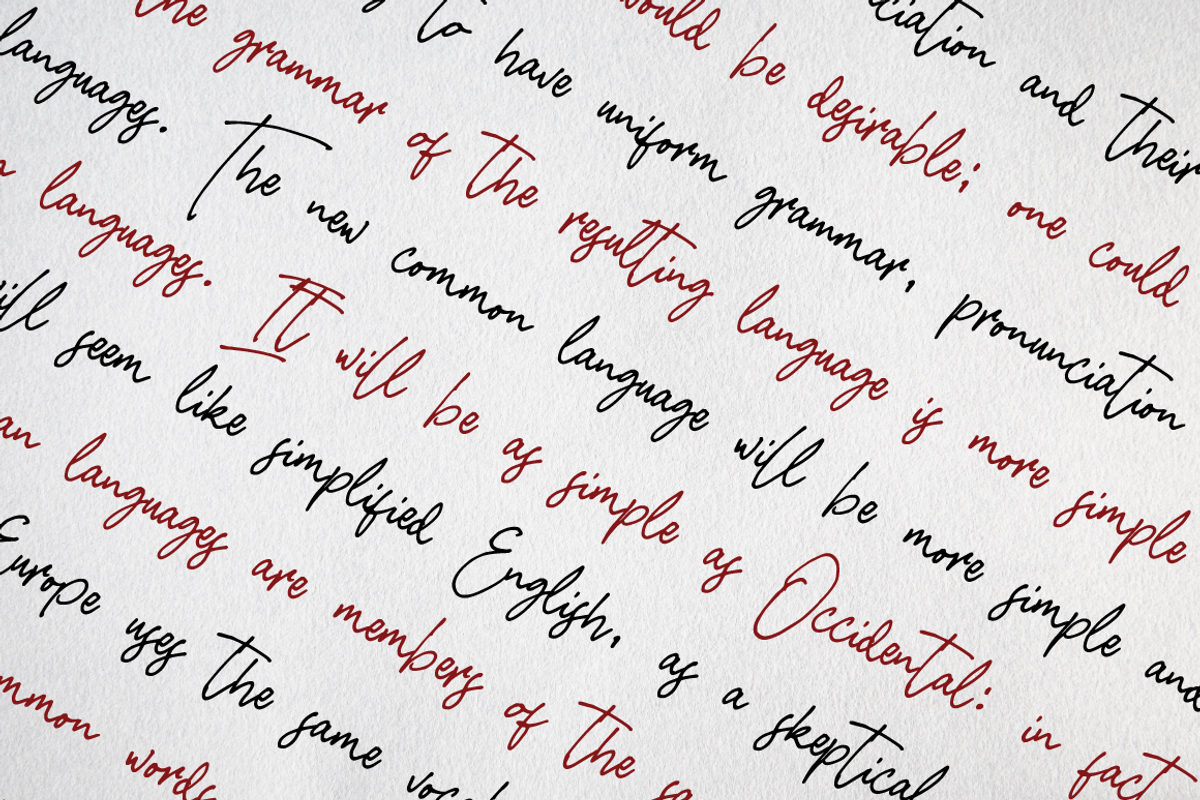 ciation and their
would be desirable; one could
to have uniform grammar, pronunciation
the grammar of the resulting language is more simple
languages. The new common language will be more simple and
languages. It will be as simple as Occidental: in fact
will seem like simplified English, as a skeptical
an languages are members of the sa
Europe uses the same
mmon words